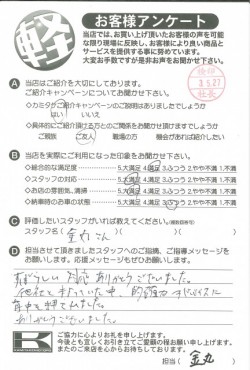 軽
お客様アンケート
当店では、お買い上げ頂いたお客様の声を可能
な限り現場に反映し、お客様により良い商品と
サービスを提供する事に努めています。
大変お手数ですが是非お声をお聞かせ下さい。
A 当店はご紹介を大切にしております。
ご紹介キャンペーンについてお聞かせ下さい。
◇カミタケご紹介キャンペーンのご説明はありましたでしょうか
はい いいえ
◇具体的にご紹介頂ける方とのご関係をお聞かせ頂けますでしょうか
ご親族 ご友人 職場の方 機会があれば紹介したい
B 当店を実際にご利用になった印象をお聞かせ下さい。
◇総合的な満足度 5大満足 4満足 3ふつう 2やや不満 1不満
◇スタッフの対応 5大満足 4満足 3ふつう 2やや不満 1不満
◇お店の雰囲気、清掃 5大満足 4満足 3ふつう 2やや不満 1不満
◇納車時のお車の状態 5大満足 4満足 3ふつう 2やや不満 1不満
C 評価したいスタッフがいれば教えてください。(複数回答可)
スタッフ名( 金丸さん )
D 担当させて頂きましたスタッフへのご指摘、ご指導メッセージを
お願いします。応援メッセージもぜひお願いします。
素晴らしい対応ありがとうございました。
他社と
中、的確なアドバイスに
背中を押してもらいました。
ありがとうございました。
K
ご協力に心よりお礼を申し上げます。
今後とも宜しくお引き立てご愛顧の程お願い申し上げます。
またのご来店を心からお待ちしております。
担当( 金丸 )